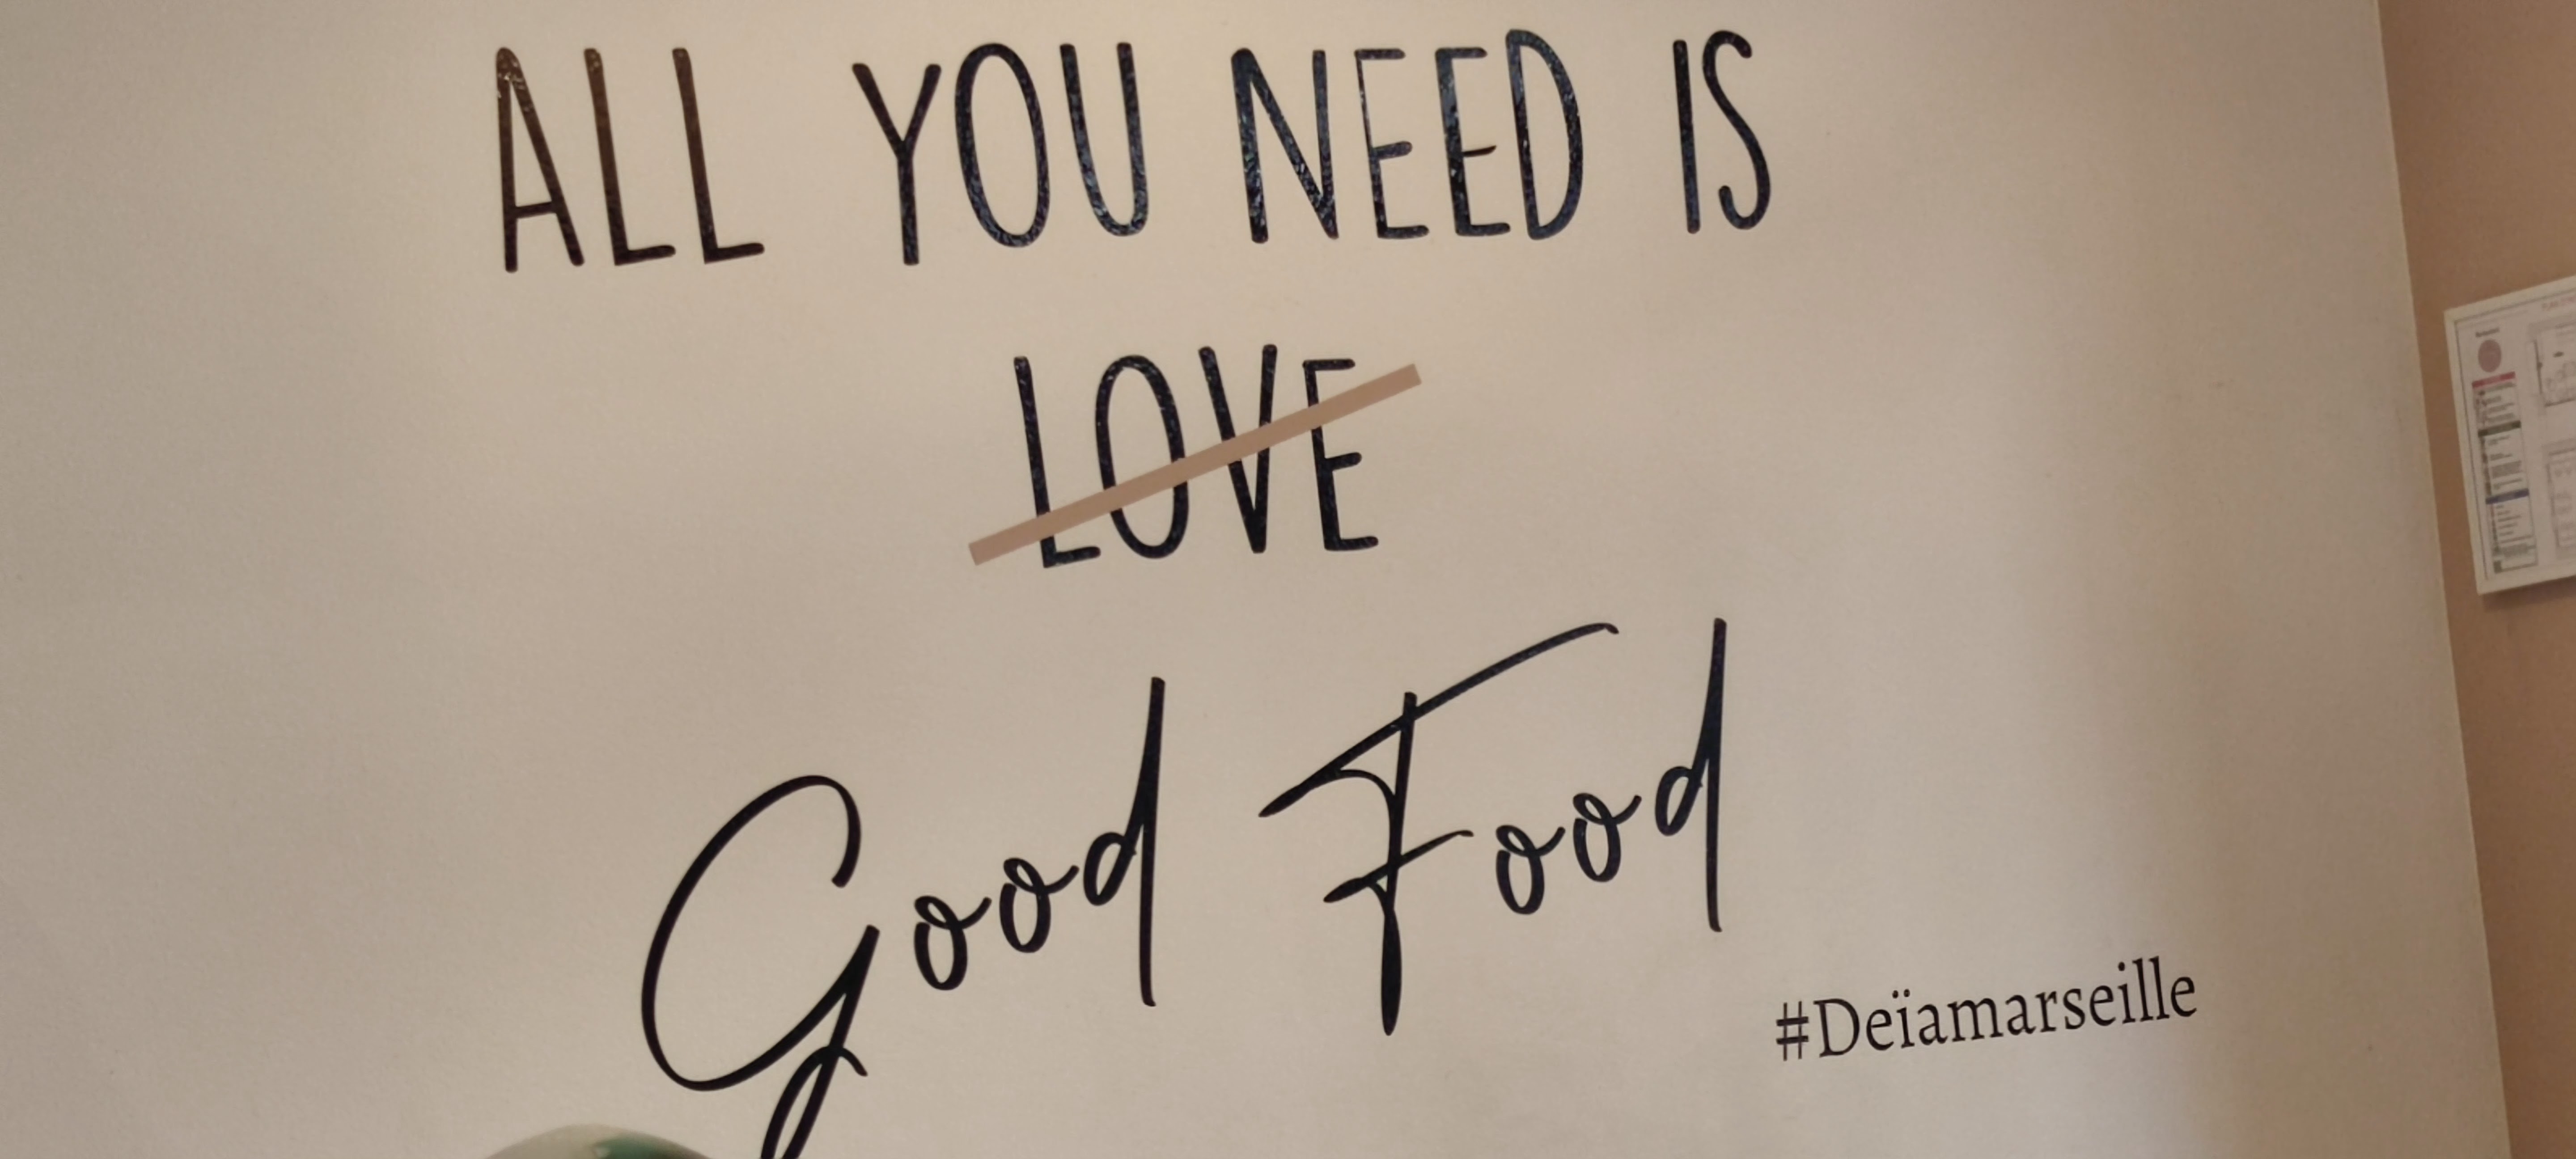 ALL YOU NEED IS
LOVE
Good Food
#Deïamarseille